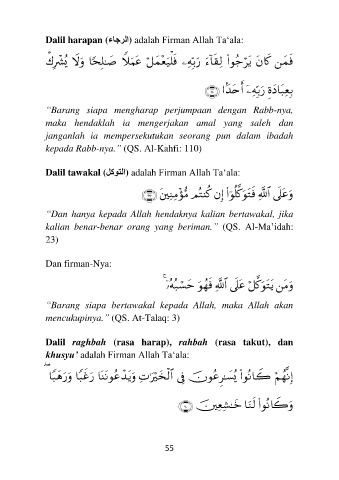 Dalil harapan (الرجاء) adalah Firman Allah Ta‘ala:
فَمَن كَانَ يَرْجُوا۟ لِقَآءَ رَبِّهِۦ فَلْيَعْمَلْ عَمَلًا صَٰلِحًا وَلَا يُشْرِكْ
بِعِبَادَةِ رَبِّهِۦٓ أَحَدًۢا
“Barang siapa mengharap perjumpaan dengan Rabb-nya,
maka hendaklah ia mengerjakan amal yang saleh dan
janganlah ia mempersekutukan seorang pun dalam ibadah
kepada Rabb-nya.” (QS. Al-Kahfi: 110)
Dalil tawakal (التوكل) adalah Firman Allah Ta‘ala:
وَعَلَى ٱللَّهِ فَتَوَكَّلُوٓا۟ إِن كُنتُم مُّؤْمِنِينَ
“Dan hanya kepada Allah hendaknya kalian bertawakal, jika
kalian benar-benar orang yang beriman.” (QS. Al-Ma’idah:
23)
Dan firman-Nya:
وَمَن يَتَوَكَّلْ عَلَى ٱللَّهِ فَهُوَ حَسْبُهُۥٓ ۚ
“Barang siapa bertawakal kepada Allah, maka Allah akan
mencukupinya.” (QS. At-Talaq: 3)
Dalil raghbah (rasa harap), rahbah (rasa takut), dan
khusyu’ adalah Firman Allah Ta‘ala:
إِنَّهُمْ كَانُوا۟ يُسَٰرِعُونَ فِى ٱلْخَيْرَٰتِ وَيَدْعُونَنَا رَغَبًا وَرَهَبًا ۖ
وَكَانُوا۟ لَنَا خَٰشِعِينَ
55